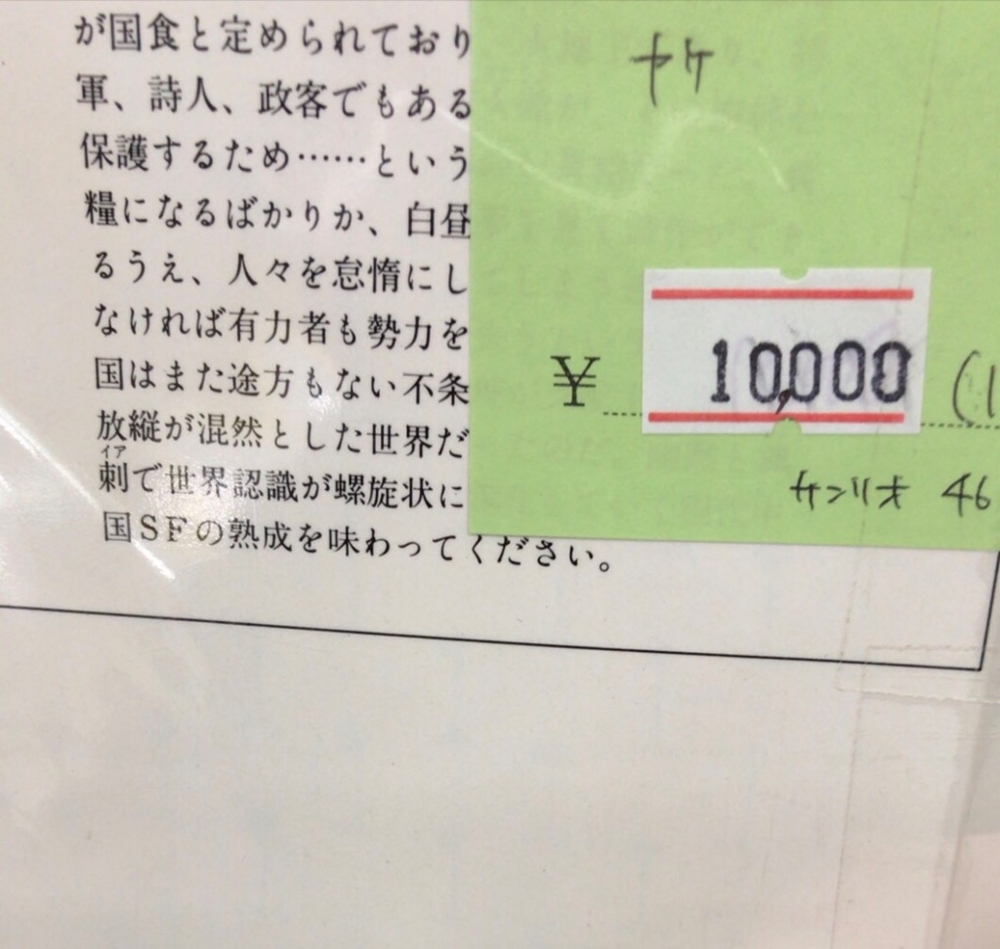 が国食と定められており
軍、詩人、政客でもある
保護するため……という
糧になるばかりか、白昼
るうえ、人々を怠惰にし
なければ有力者も勢力を
国はまた途方もない不条
放縦が混然とした世界だ
イア
刺で世界認識が螺旋状に
国SFの熟成を味わってください。
ヤケ
¥ 10,000 (1
サンリオ 46